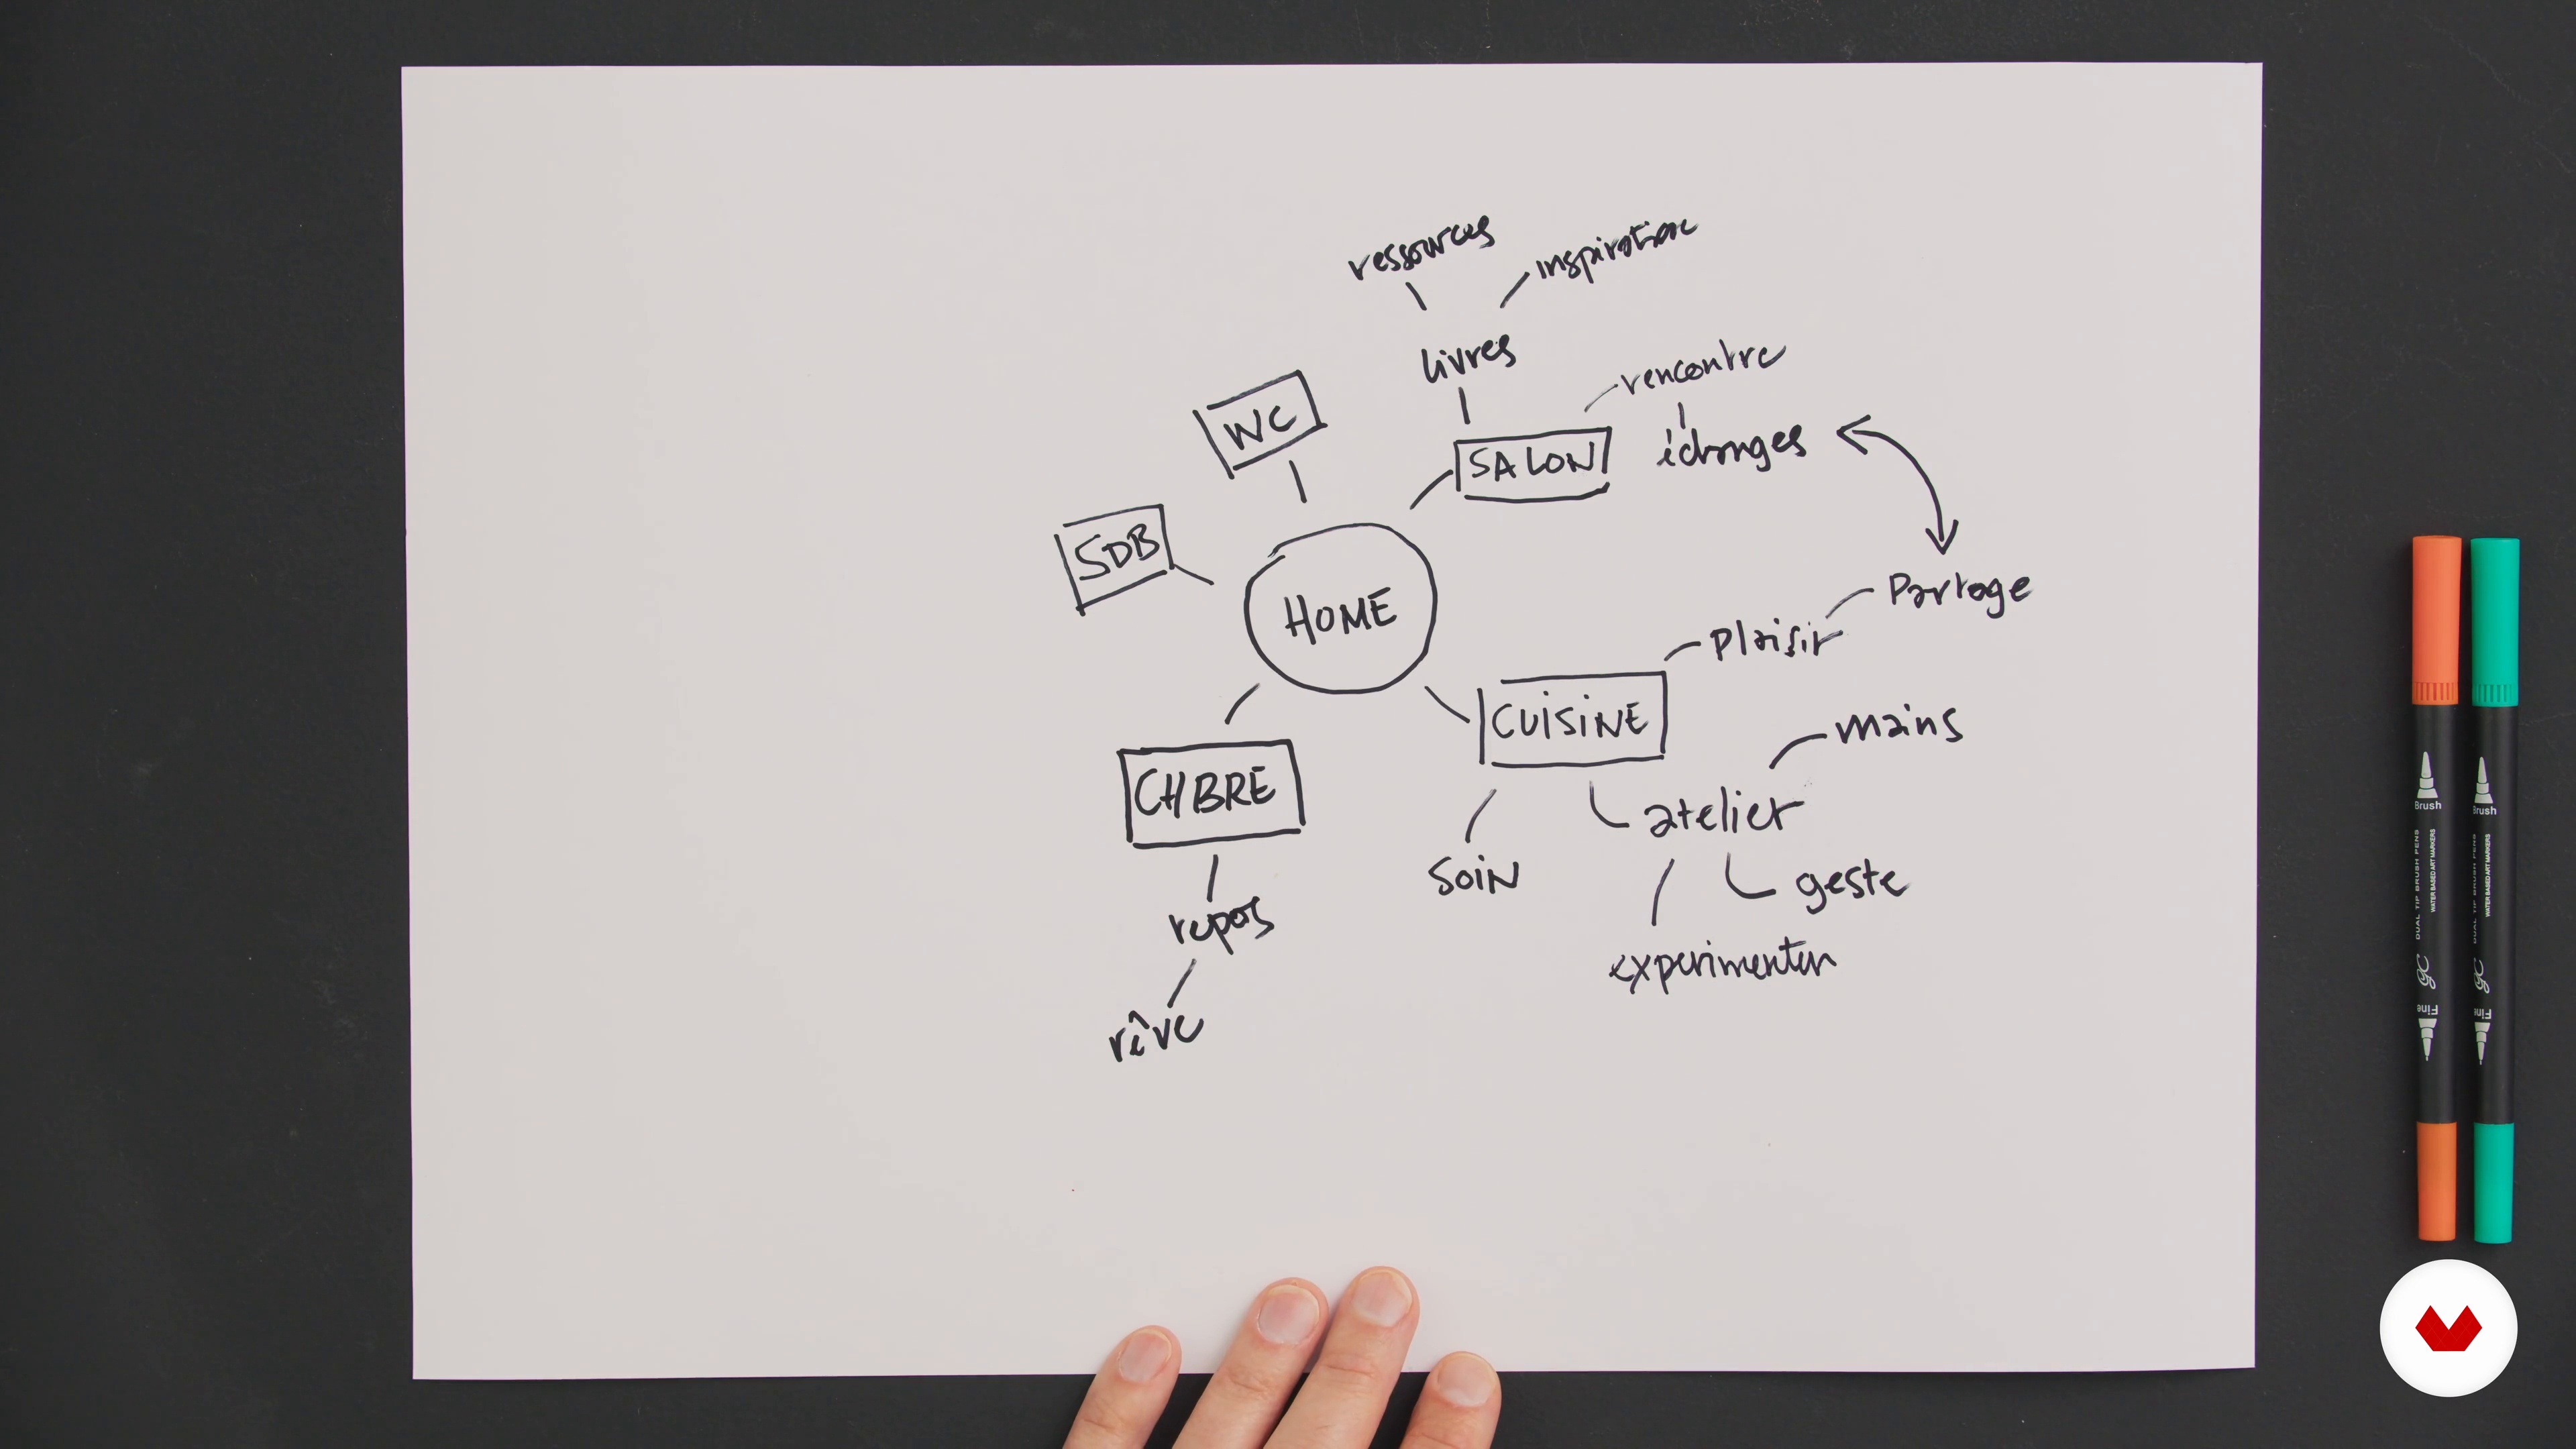 ressources
inspiration
livres
rencontre
WC
SALON
échanges
SDB
HOME
Partage
plaisir
CUISINE
mains
CHBRE
atelier
soin
geste
repos
experimenter
rêve
Brush
Brush
DUAL TIP BRUSH PENS
WATER BASED ART MARKERS
DUAL TIP BRUSH PENS
WATER BASED ART MARKERS
Fine
Fine